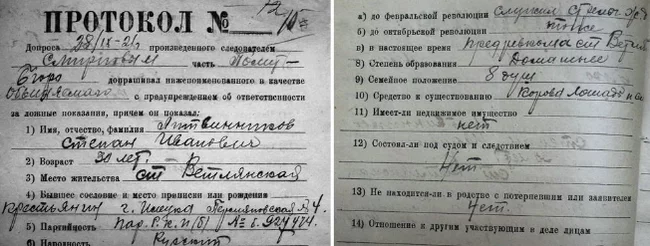 ПРОТОКОЛ №
Допроса 28/IX-2 произведенного следователем
Смирновым часть Полит-
бюро допрашивал нижепоименованного и качестве
Обвиняемаго с предупреждением об ответственности
за ложные показания, причем он показал:
1) Имя, отчество, фамилия Литвинников
Степан Иванович
2) Возраст 30 лет.
3) Место жительства ст Ветлянская
4) Бывшее сословие и место прописки или рождения
крестьянин г. Илецка
5) Партийность Р.К.П(б) № 6.927474.
Народность Русский
а) до февральской революции служил
б) до октябрьской революции тоже
в) и настоящее время предревкома ст Ветлян
8) Степень образования Домашнее
9) Семейное положение 8 душ
10) Средство к существованию Корова Лошадь
11) Имеет-ли недвижимое имущество
нет
12) Состоял-ли под судом и следствием
Нет
13) Не находится-ли в родстве с потерпевшим или заявителем
Нет.
14) Отношение к другим участвующим в деле лицам